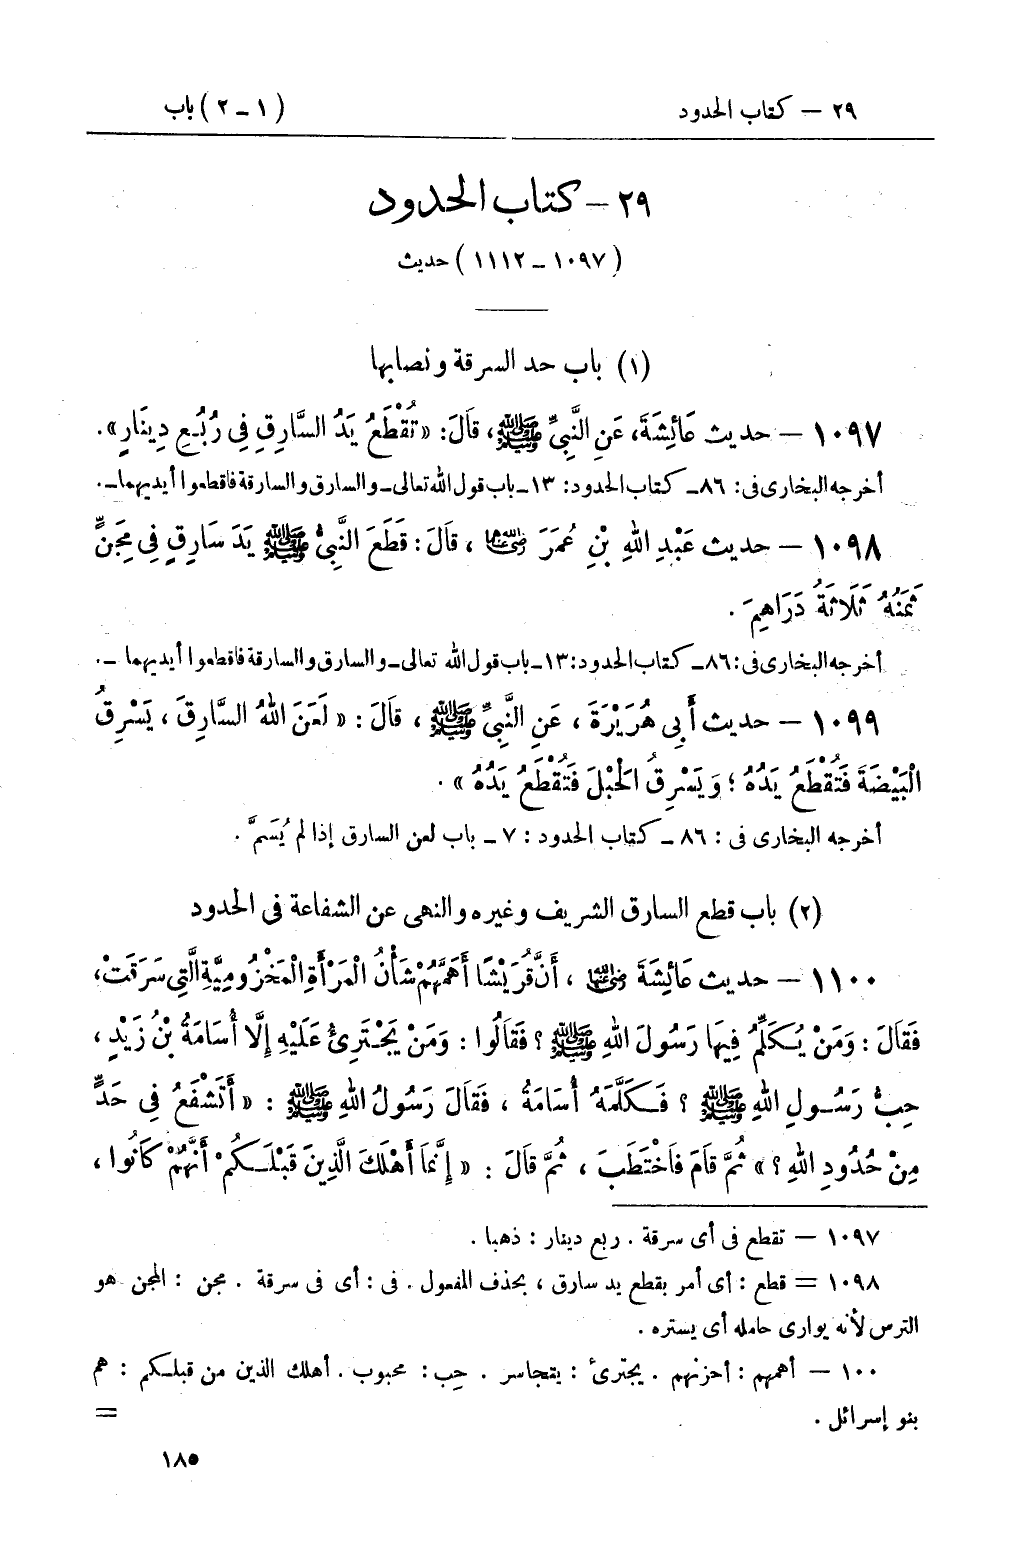 ٢٩ – كتاب الحدود
(١ – ٢) باب
٢٩ – كتاب الحدود
(١٠٩٧ – ١١١٢) حديث
(١) باب حد السرقة ونصابها
١٠٩٧ – حديث عَائِشَةَ، عَنِ النَّبِيِّ ﷺ، قَالَ: «تُقْطَعُ يَدُ السَّارِقِ فِي رُبُعِ دِينَارٍ».
أخرجه البخارى فى: ٨٦ـ كتاب الحدود: ١٣ـ باب قول الله تعالى ـ والسارق والسارقة فاقطعوا أيديهما ـ.
١٠٩٨ – حديث عَبْدِ اللهِ بْنِ عُمَرَ رضي الله عنهما، قَالَ: قَطَعَ النَّبِيُّ ﷺ يَدَ سَارِقٍ فِي مِجَنٍّ
ثَمَنُهُ ثَلَاثَةُ دَرَاهِمَ.
أخرجه البخارى فى: ٨٦ـ كتاب الحدود: ١٣ـ باب قول الله تعالى ـ والسارق والسارقة فاقطعوا أيديهما ـ.
١٠٩٩ – حديث أَبِي هُرَيْرَةَ، عَنِ النَّبِيِّ ﷺ، قَالَ: «لَعَنَ اللهُ السَّارِقَ، يَسْرِقُ
الْبَيْضَةَ فَتُقْطَعُ يَدُهُ؛ وَيَسْرِقُ الْحَبْلَ فَتُقْطَعُ يَدُهُ».
أخرجه البخارى فى: ٨٦ ـ كتاب الحدود: ٧ ـ باب لعن السارق إذا لم يُسَمَّ.
(٢) باب قطع السارق الشريف وغيره والنهى عن الشفاعة فى الحدود
١١٠٠ – حديث عَائِشَةَ رضي الله عنها، أَنَّ قُرَيْشًا أَهَمَّهُمْ شَأْنُ الْمَرْأَةِ الْمَخْزُومِيَّةِ الَّتِي سَرَقَتْ،
فَقَالَ: وَمَنْ يُكَلِّمُ فِيهَا رَسُولَ اللهِ ﷺ؟ فَقَالُوا: وَمَنْ يَجْتَرِئُ عَلَيْهِ إِلَّا أُسَامَةُ بْنُ زَيْدٍ،
حِبُّ رَسُولِ اللهِ ﷺ؟ فَكَلَّمَهُ أُسَامَةُ، فَقَالَ رَسُولُ اللهِ ﷺ: «أَتَشْفَعُ فِي حَدٍّ
مِنْ حُدُودِ اللهِ؟» ثُمَّ قَامَ فَاخْتَطَبَ، ثُمَّ قَالَ: «إِنَّمَا أَهْلَكَ الَّذِينَ قَبْلَكُمْ أَنَّهُمْ كَانُوا،
١٠٩٧ – تقطع فى أى سرقة. ربع دينار: ذهبا.
١٠٩٨ = قطع: أى أمر بقطع يد سارق، بحذف المفعول. فى: أى فى سرقة. مجن: المجن هو
الترس لأنه يوارى حامله أى يستره.
١٠٠ – أهمهم: أحزنهم. يجترئ: يتجاسر. حِب: محبوب. أهلك الذين من قبلكم: هم
بنو إسرائل.
=
١٨٥